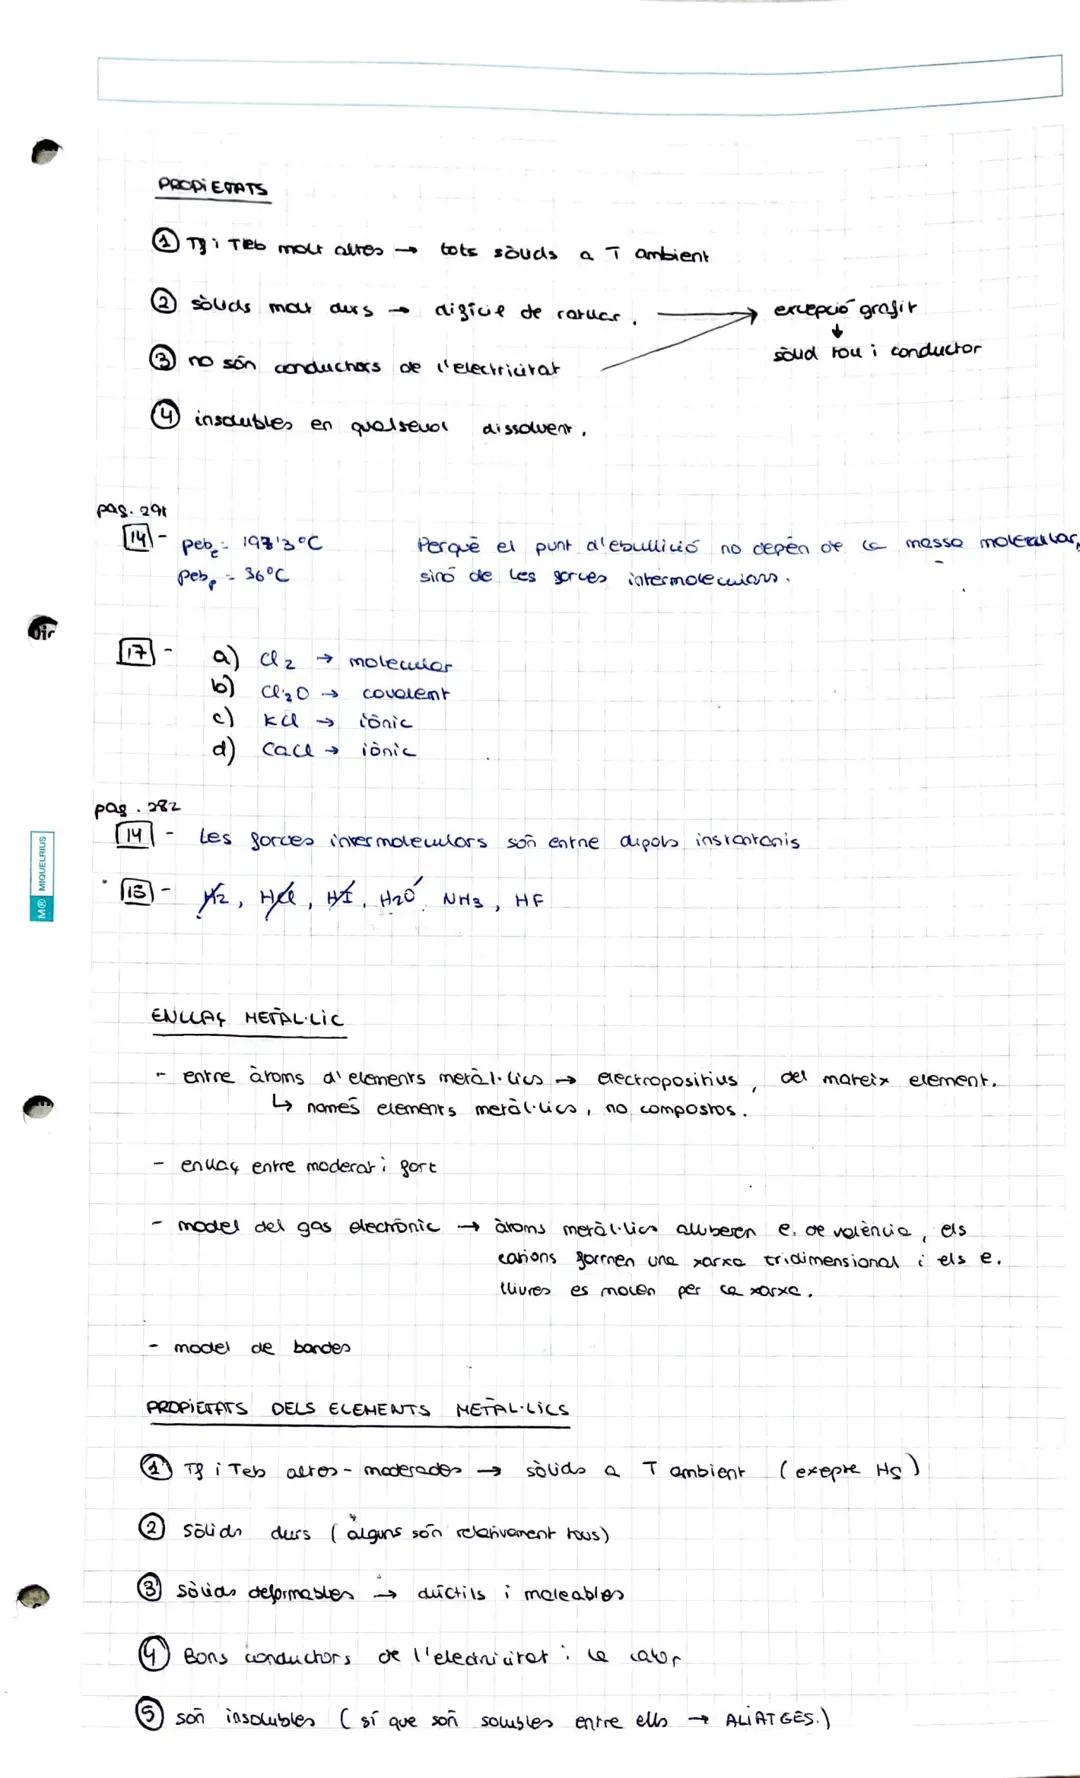 PROPiETATS
① Tf i Teb molt altes → tots sòlids a T ambient
② sòlids molt durs → difícil de ratllar. → excepció grafit
↓
sòlid tou i conductor
③ no són conductors de l'electricitat
④ insolubles en qualsevol dissolvent.
pag. 291
14 - peb = 193'3°C Perquè el punt d'ebullició no depèn de la massa molecular,
peb = 36°C sinó de les forces intermoleculars.
17 - a) Cl2 → molecular
b) Cl2O → covalent
c) KCl → iònic
d) CaCl → iònic
pag. 282
14 - Les forces intermoleculars són entre dipols instantanis
13 - H2, HCl, HI, H2O, NH3, HF
M® MIQUELRIUS
ENLLAÇ METÀL·LiC
- entre àtoms d'elements metàl·lics → electropositius, del mateix element.
↳ només elements metàl·lics, no compostos.
- enllaç entre moderat i fort
- model del gas electrònic → àtoms metàl·lics alliberen e. de valència, els
cations formen una xarxa tridimensional i els e.
lliures es mouen per la xarxa.
- model de bandes
PROPiETATS DELS ELEMENTS METÀL·LiCS
① Tf i Teb altes - moderades → sòlids a T ambient (exepte Hg)
② Sòlids durs (alguns són relativament tous)
③ Sòlids deformables → dúctils i maleables
④ Bons conductors de l'electricitat i la calor
⑤ són insolubles (sí que són solubles entre ells → ALiATGES.)